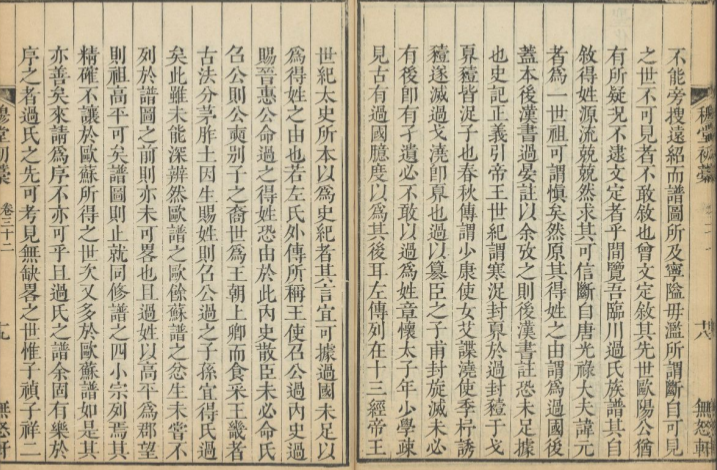 不能旁搜遠紹而譜圖所及寧隘毋濫所謂斷自可見
之世不可見者不敢敘也曾文定敘其先世歐陽公猶
有所疑況不逮文定者乎間覽吾臨川過氏族譜其自
敘得姓源流兢兢然求其可信斷自唐光祿大夫諱元
者為一世祖可謂慎矣然原其得姓之由謂為過國後
蓋本後漢書過晏註以余攷之則後漢書註恐未足據
也史記正義引帝王世紀謂寒浞封夏於過封豷于戈
夏豷皆浞子也春秋傳謂少康使女艾諜澆使季杼誘
豷遂滅過戈澆卽夏也過以簒臣之子甫封旋滅未必
有後卽有孑遺必不敢以過為姓章懷太子年少學疎
見古有過國臆度以為其後耳左傳列在十三經帝王
世紀太史所本以為史紀者其言宜可據過國未足以
為得姓之由也若左氏外傳所稱王使召公過內史過
賜晉惠公命過之得姓恐由於此內史散臣未必命氏
召公則公奭别子之裔世為王朝上卿而食采王畿者
古法分茅胙土因生賜姓則召公過之子孫宜得氏過
矣此雖未能深辨然歐譜之歐餘蘇譜之忿生未嘗不
列於譜圖之前則亦未可畧也且過姓以高平為郡望
則祖高平可矣譜圖則止就同修譜之四小宗列焉其
精確不讓於歐蘇所得之世次又多於歐蘇譜如是其
亦善矣來請為序不亦可乎且過氏之譜余固有樂於
序之者過氏之先可考見無缺畧之世惟子禎子祥二
穆堂初藁
卷三十二
十九
無怒軒
穆堂初藁
十八
無怒軒